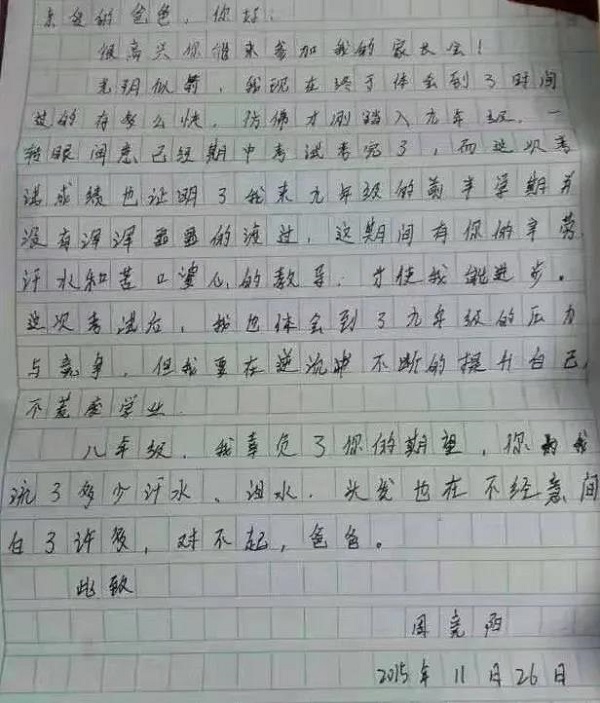 亲爱的爸爸，你好：
很高兴你能来参加我的家长会！
光阴似箭，我现在终于体会到了时间
过的有多么快，仿佛才刚踏入九年级，一
转眼间竟已经期中考试考完了，而这次考
试成绩也证明了我来九年级的前半学期并
没有浑浑噩噩的渡过，这期间有你的辛劳
汗水和苦口婆心的教导，才使我能进步。
这次考试后，我也体会到了九年级的压力
与竞争，但我要在逆流中不断的提升自己，
不荒废学业
八年级，我辜负了你的期望，你为我
流了多少汗水、泪水，头发也在不经意间
白了许多，对不起，爸爸。
此致
周亮阳
2015年11月26日